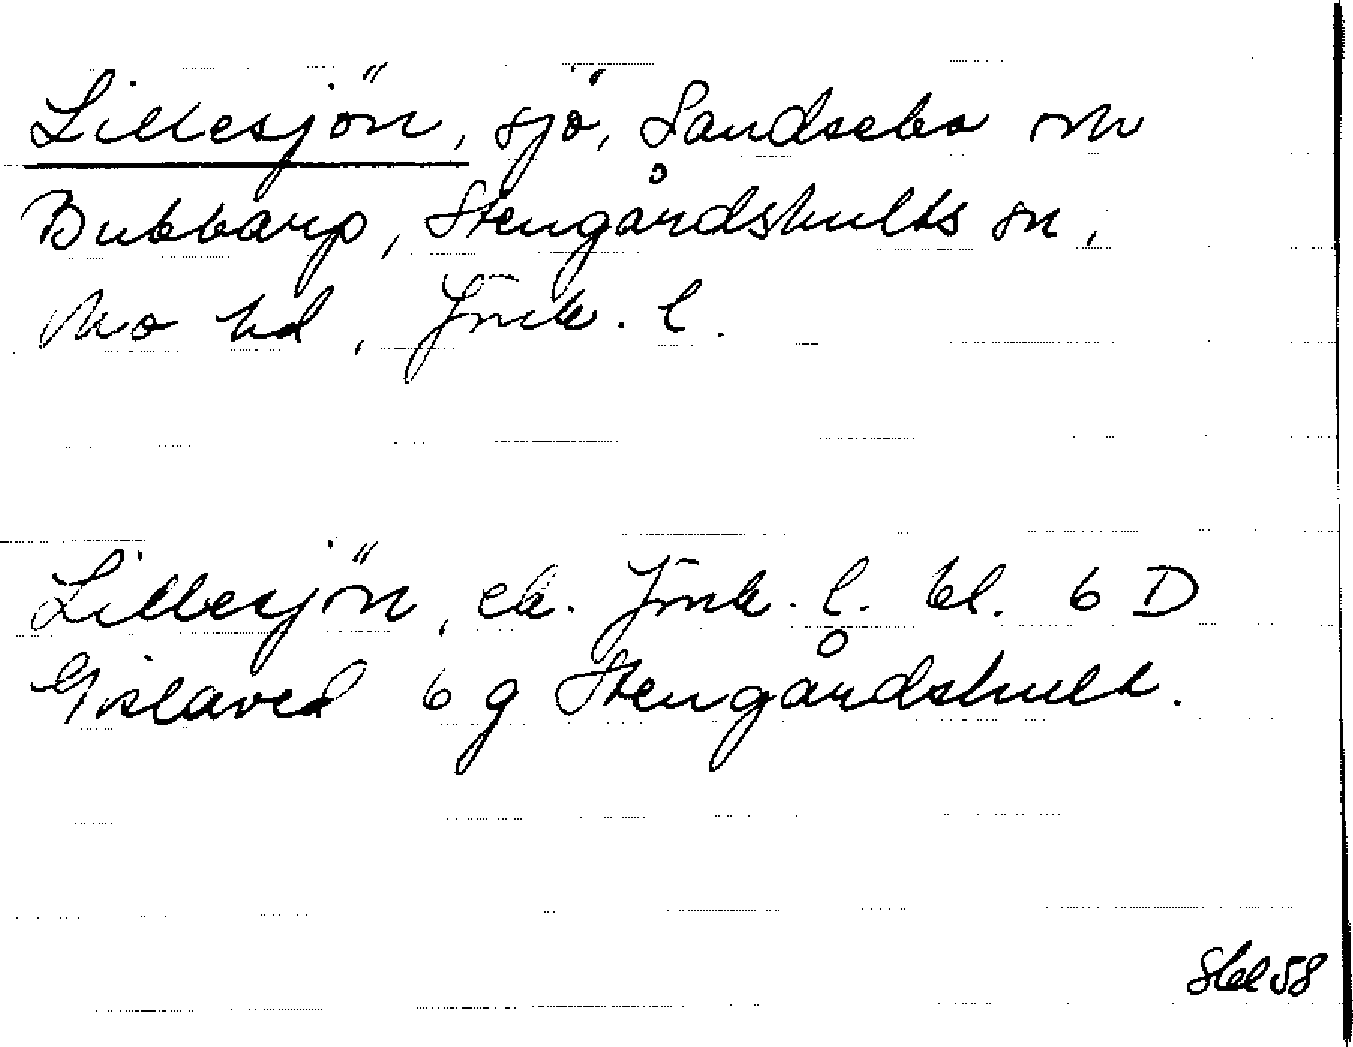 Lillesjön, sjö, Sandsebo och
Bubbarp, Stengårdshults sn,
Mo hd, Jönk. l.
Lillesjön, ek. Jönk. l. bl. 6 D
Gislaved 6 g Stengårdshult.